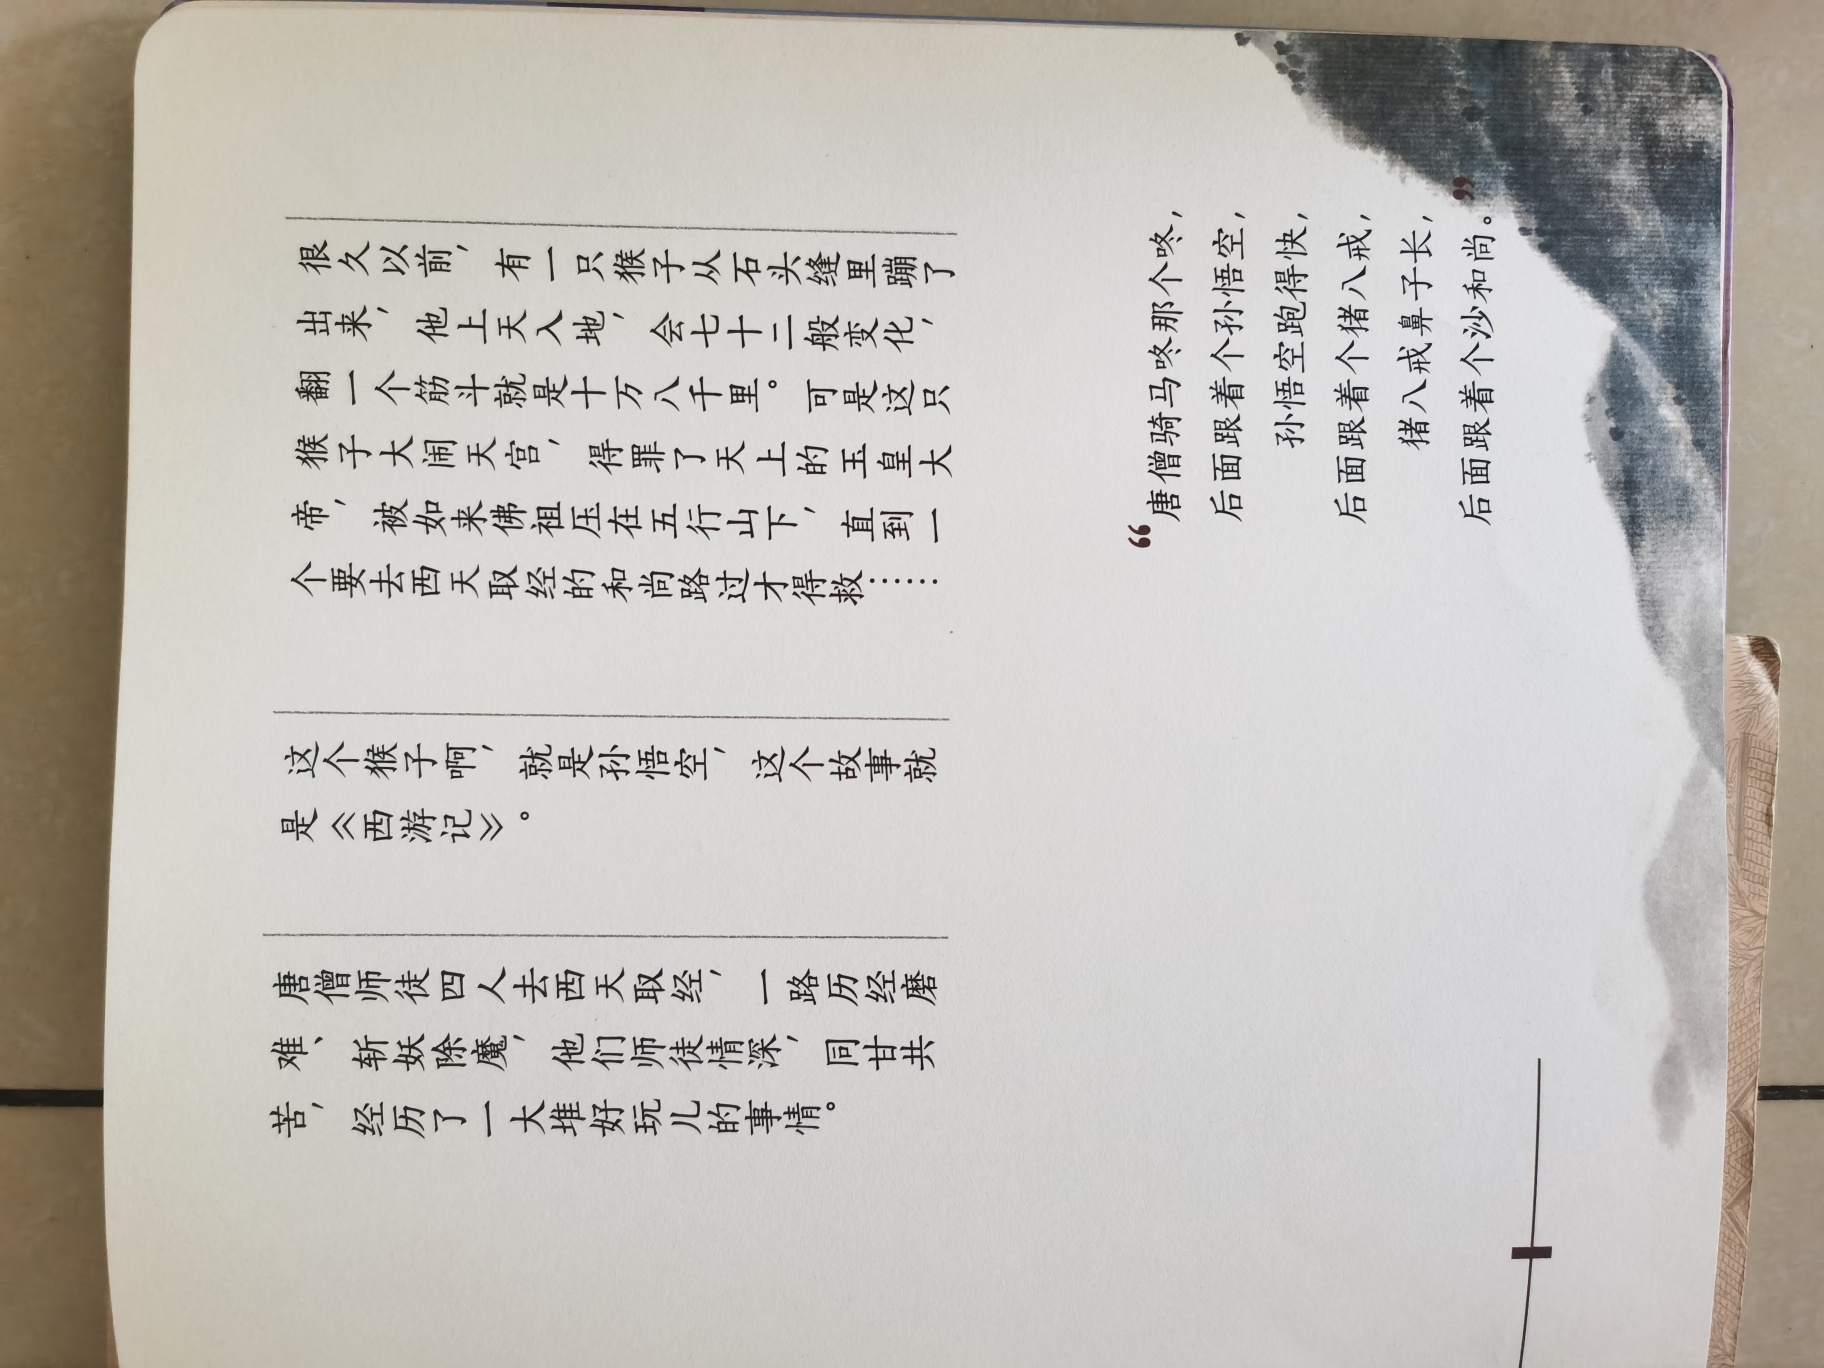 很久以前，有一只猴子从石头缝里蹦了
出来，他上天入地，会七十二般变化，
翻一个筋斗就是十万八千里。可是这只
猴子大闹天宫，得罪了天上的玉皇大
帝，被如来佛祖压在五行山下，直到一
个要去西天取经的和尚路过才得救……
这个猴子啊，就是孙悟空，这个故事就
是《西游记》。
唐僧师徒四人去西天取经，一路历经磨
难、斩妖除魔，他们师徒情深，同甘共
苦，经历了一大堆好玩儿的事情。
“唐僧骑马咚那个咚，
后面跟着个孙悟空，
孙悟空跑得快，
后面跟着个猪八戒，
猪八戒鼻子长，
后面跟着个沙和尚。”